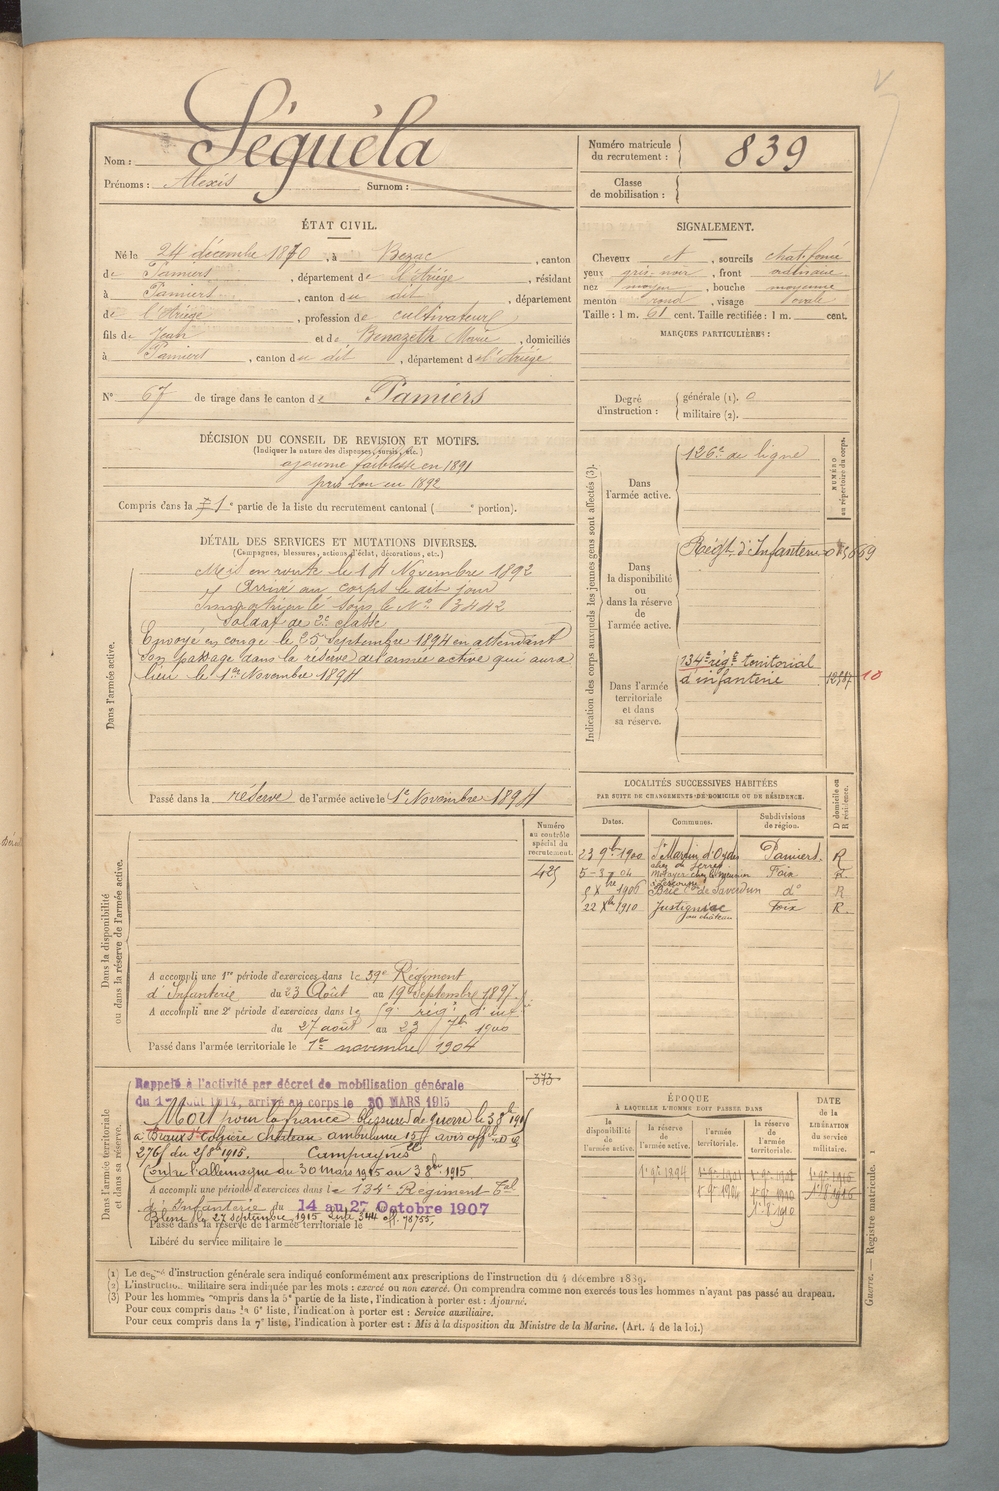 Nom : Séguéla
Prénoms : Alexis Surnom :
Numéro matricule du recrutement : 839
Classe de mobilisation :
ÉTAT CIVIL.
Né le 24 décembre 1870, à Bezac, canton
de Pamiers, département de l'Ariège, résidant
à Pamiers, canton du dit, département
de l'Ariège, profession de cultivateur
fils de Jean et de Benazeth Marie, domiciliés
à Pamiers, canton du dit, département de l'Ariège
N° 67 de tirage dans le canton de Pamiers
SIGNALEMENT.
Cheveux et, sourcils chat. foncé
yeux gris-noir, front ordinaire
nez moyen, bouche moyenne
menton rond, visage ovale
Taille : 1 m. 61 cent. Taille rectifiée : 1 m. cent.
MARQUES PARTICULIÈRES :
Degré d'instruction : générale (1). 0
militaire (2).
DÉCISION DU CONSEIL DE REVISION ET MOTIFS.
(Indiquer la nature des dispenses, sursis, etc.)
ajourné faiblesse en 1891
pris bon en 1892
Compris dans la 1e partie de la liste du recrutement cantonal ( e portion).
DÉTAIL DES SERVICES ET MUTATIONS DIVERSES.
(Campagnes, blessures, actions d'éclat, décorations, etc.)
Dans l'armée active.
Mis en route le 14 Novembre 1892
Arrivé au corps le dit jour
Immatriculé sous le N° 3442
Soldat de 2e classe
Envoyé en congé le 25 Septembre 1894 en attendant
son passage dans la réserve de l'armée active qui aura
lieu le 1er Novembre 1894
Passé dans la réserve de l'armée active le 1er Novembre 1894
Indication des corps auxquels les jeunes gens sont affectés (3).
NUMÉRO au répertoire du corps.
Dans l'armée active.
126e de ligne
Dans la disponibilité ou dans la réserve de l'armée active.
Régt d'Infanterie
Dans l'armée territoriale et dans sa réserve.
134e régt territorial
d'infanterie
10
LOCALITÉS SUCCESSIVES HABITÉES
PAR SUITE DE CHANGEMENTS DE DOMICILE OU DE RÉSIDENCE.
Dates. Communes. Subdivisions de région. D domicile ou R résidence.
23 9bre 1900 St Martin d'Oydes Pamiers. R
Foix R.
Xbre 1906 Brie Con de Saverdun do R
22 Xbre 1910 Justiniac au château Foix R.
Numéro au contrôle spécial du recrutement.
425
Dans la disponibilité ou dans la réserve de l'armée active.
A accompli une 1re période d'exercices dans le 59e Régiment
d'Infanterie du 23 Août au 19 Septembre 1897
A accompli une 2e période d'exercices dans le 59 régt d'inf
du 27 août au 23 7bre 1900
Passé dans l'armée territoriale le 1er novembre 1904
373
Dans l'armée territoriale et dans sa réserve.
Rappelé à l'activité par décret de mobilisation générale
du 1er août 1914, arrivé au corps le 30 MARS 1915
Mort pour la france blessures de guerre le 3 8bre 1915
a Braux St Cohière château ambulance 15/
276/ du 2/8bre 1915. Campagnes
Contre l'allemagne du 30 mars 1915 au 3 8bre 1915
A accompli une période d'exercices dans le 134e Régiment Tal
d'Infanterie du 14 au 27 Octobre 1907
Blessé le 27 septembre 1915.
Passé dans la réserve de l'armée territoriale le
Libéré du service militaire le
ÉPOQUE
À LAQUELLE L'HOMME DOIT PASSER DANS
DATE de la LIBÉRATION du service militaire.
la disponibilité de l'armée active. la réserve de l'armée active. l'armée territoriale. la réserve de l'armée territoriale.
1er 9bre 1894
1er 9bre 1904
(1) Le degré d'instruction générale sera indiqué conformément aux prescriptions de l'instruction du 4 décembre 1889.
(2) L'instruction militaire sera indiquée par les mots : exercé ou non exercé. On comprendra comme non exercés tous les hommes n'ayant pas passé au drapeau.
(3) Pour les hommes compris dans la 5e partie de la liste, l'indication à porter est : Ajourné.
Pour ceux compris dans la 6e liste, l'indication à porter est : Service auxiliaire.
Pour ceux compris dans la 7e liste, l'indication à porter est : Mis à la disposition du Ministre de la Marine. (Art. 4 de la loi.)
Guerre. — Registre matricule. 1